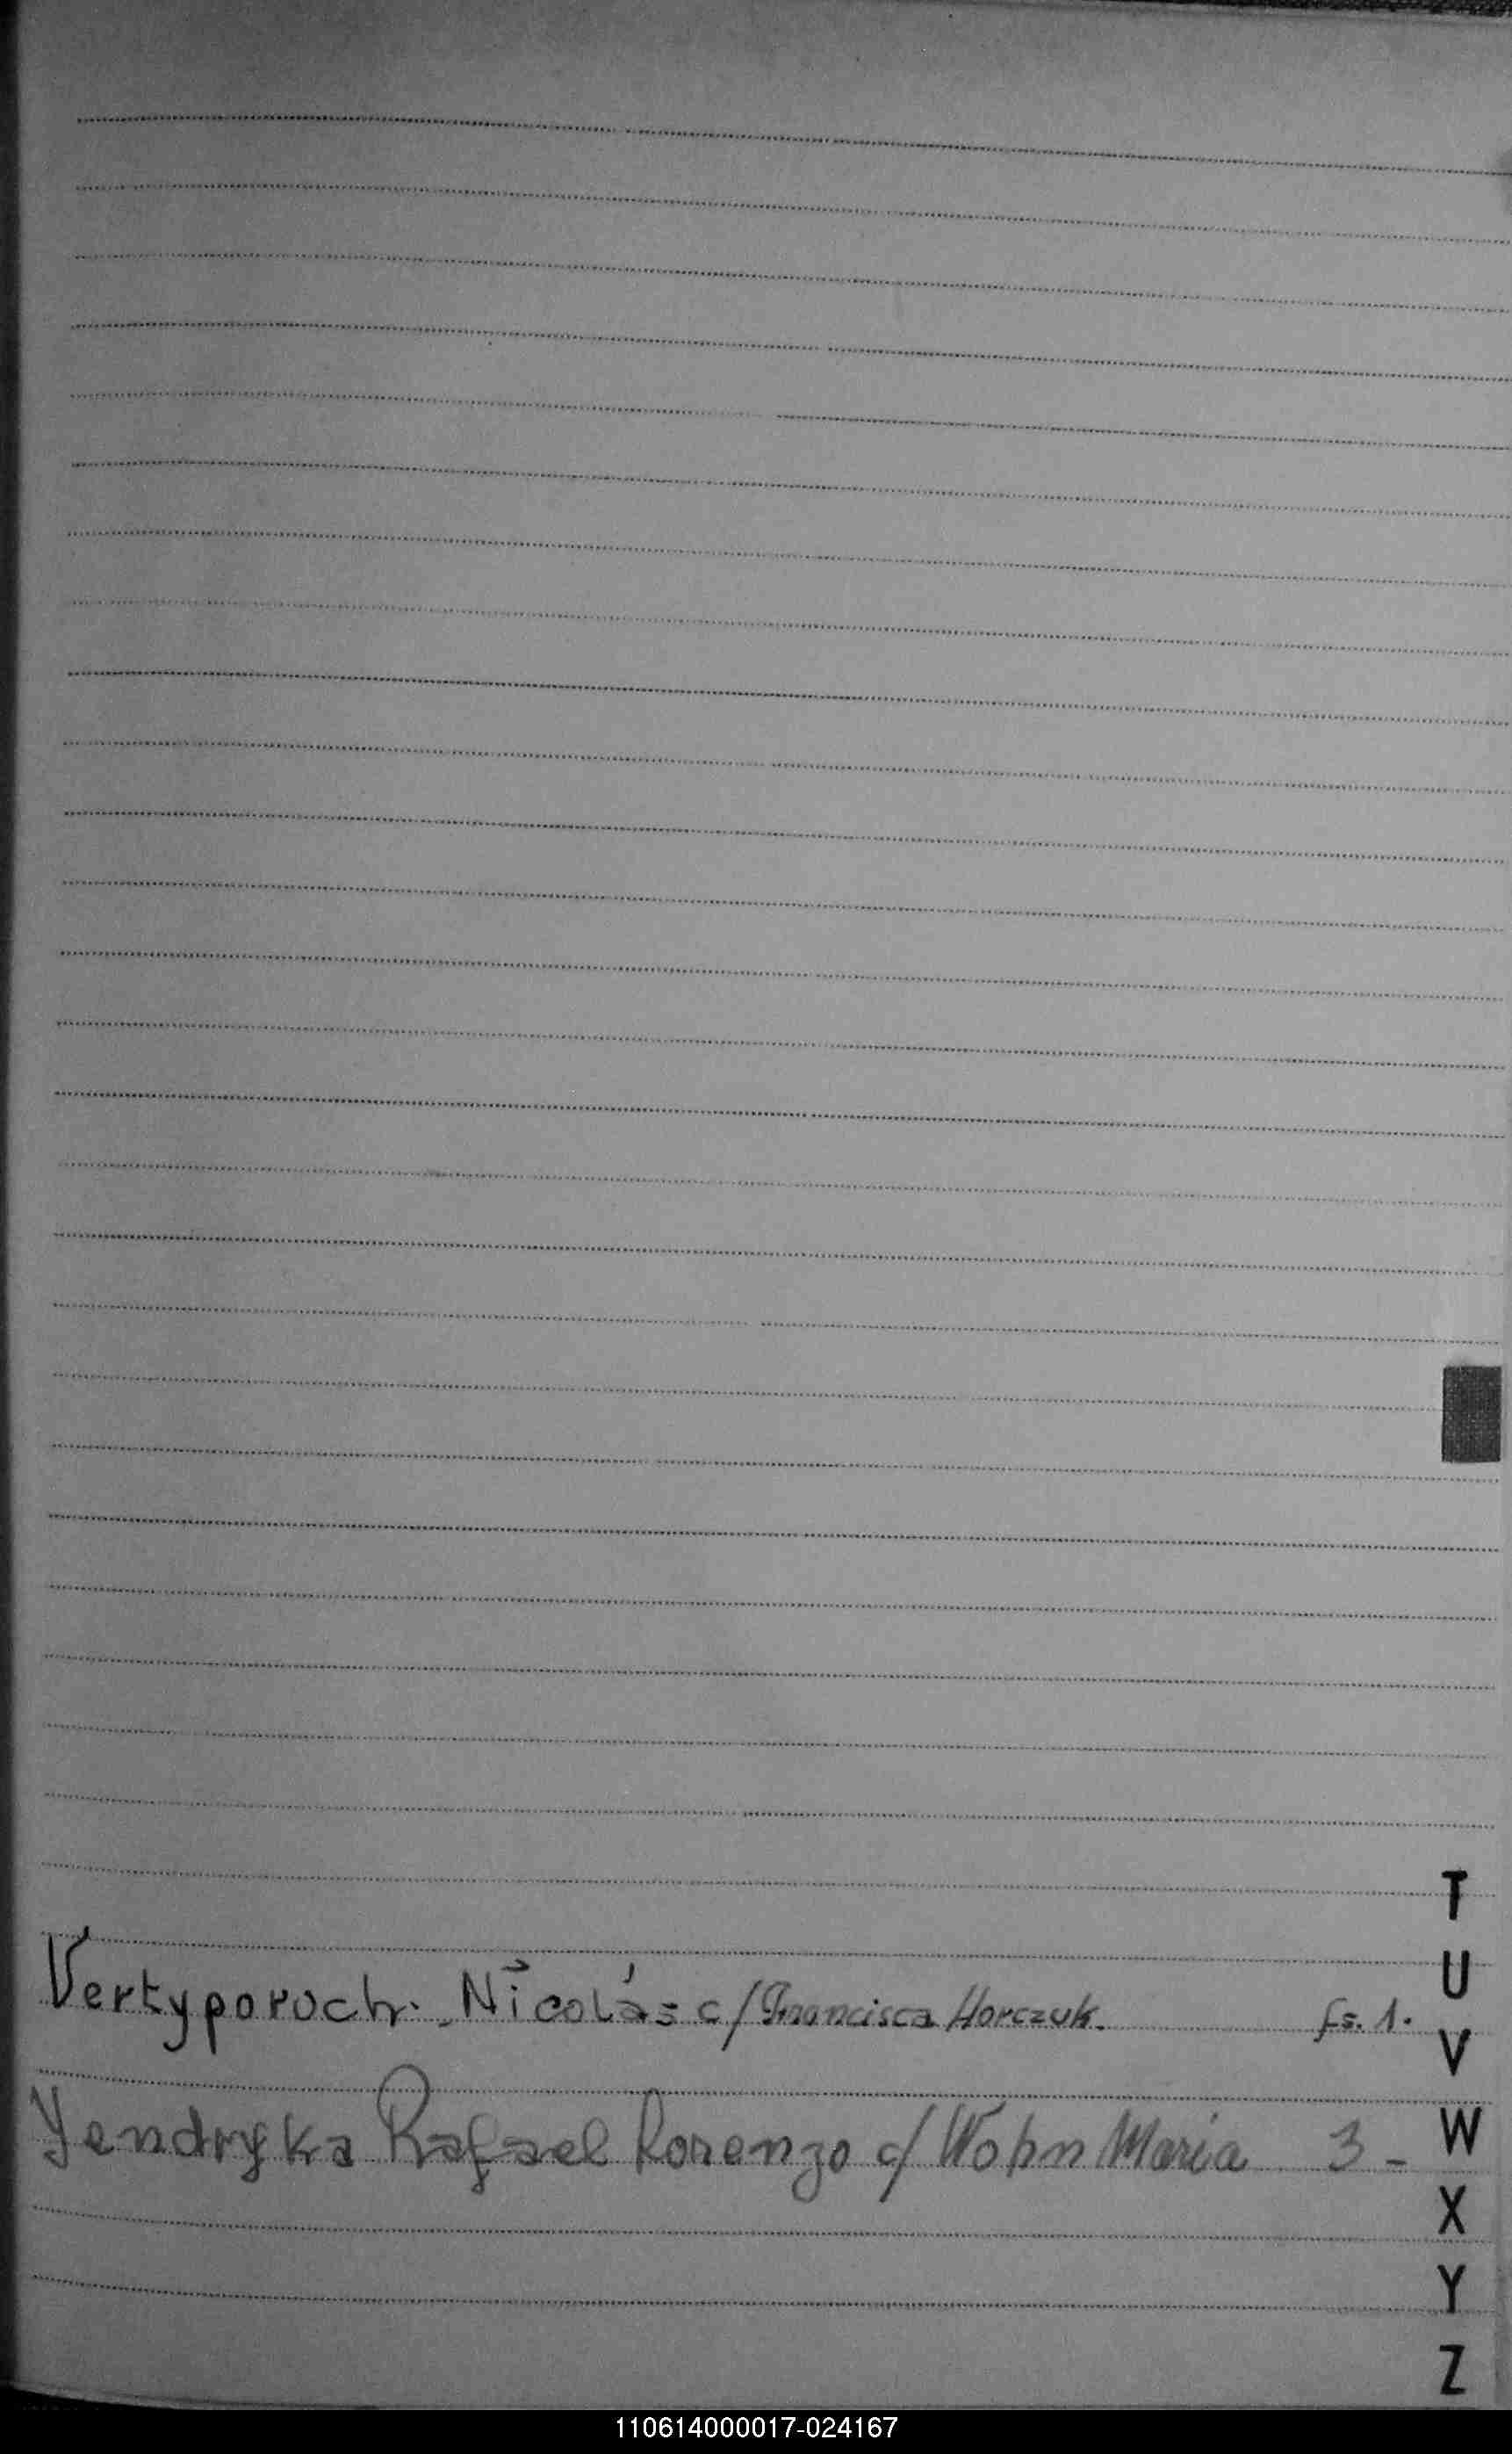 T
U
Vertyporoch. Nicolás c/ Francisca Horczuk. fs. 1.
V
Yendryka Rafael Lorenzo c/ Wohn Maria 3-
W
X
Y
Z
110614000017-024167